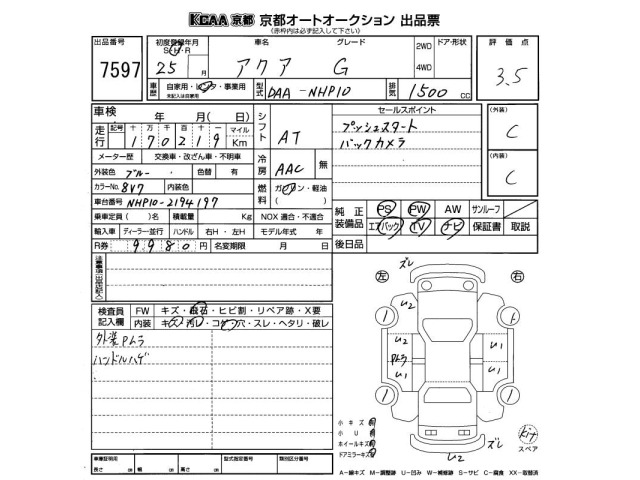 KCAA 京都 京都オートオークション 出品票
(赤枠内は必ず記入して下さい)
出品番号 7597
初度登録年月 S・H・R 25 月
車名 アクア
グレード G
2WD 4WD
ドア・形状
評価点 3.5
車歴 自家用・レンタ・事業用
未記入は自家用
型式 DAA-NHP10
排気 1500 CC
車検 年 月( 日)
走行 記号 十万千百十一 170219 マイル Km
シフト AT
セールスポイント
プッシュスタート
バックカメラ
(外装) C
(内装) C
メーター歴 交換車・改ざん車・不明車
外装色 ブルー 色替 有
冷房 AAC 無
カラーNo. 8V7 内装色
燃料 ガソリン・軽油 ( )
車台番号 NHP10-2194197
乗車定員( )名 積載量 Kg NOX 適合・不適合
輸入車 ディーラー・並行 ハンドル 右H・左H モデル年式 年
R券 9980 円 名変期限 月 日
純正装備品 PS PW AW サンルーフ
エアバック TV ナビ 保証書 取説
後日品
注意事項(出品店記入)
検査員記入欄 FW キズ・飛石・ヒビ割・リペア跡・X要
内装 キズ・汚レ・コゲ・穴・スレ・ヘタリ・破レ
外装Pトラ
ハンドルハゲ
左 右
ズレ
U2
U2
Pトラ
U1
U1
U1
ズレ
U2
小キズ 有
小U 有
ホイールキズ 有
ドアミラーキズ 有
kit
スペア
車庫証明用 長さ cm 幅 cm 高さ cm
型式指定番号
類別区分番号
A−線キズ M−調整跡 U−凹み W−補修跡 S−サビ C−腐食 XX−取替済